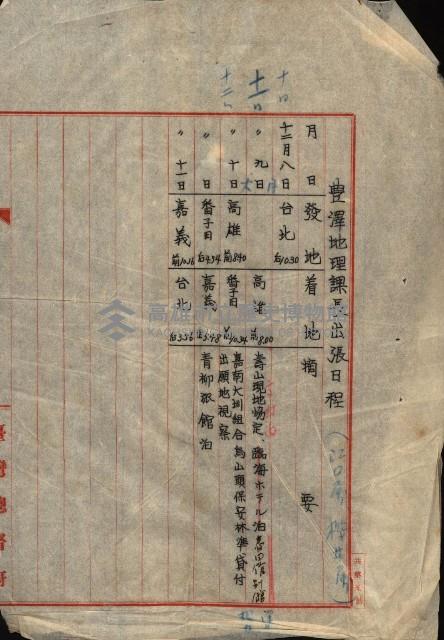 豊澤地理課長出張日程
月日 發地 着地 摘要
十二月八日 台北 后10.30
〃 九日 高雄 前8.00 壽山現地協定、臨海ホテル泊
〃 十日 高雄 前8.40 番子田 前10.34 嘉南大圳組合烏山頭保安林準貸付出願地視察
〃 日 番子田 后4.34 嘉義 后5.48 青柳旅館泊
〃 十一日 嘉義 前10.16 台北 后3.56
臺灣總督府
高雄市立歷史博物館